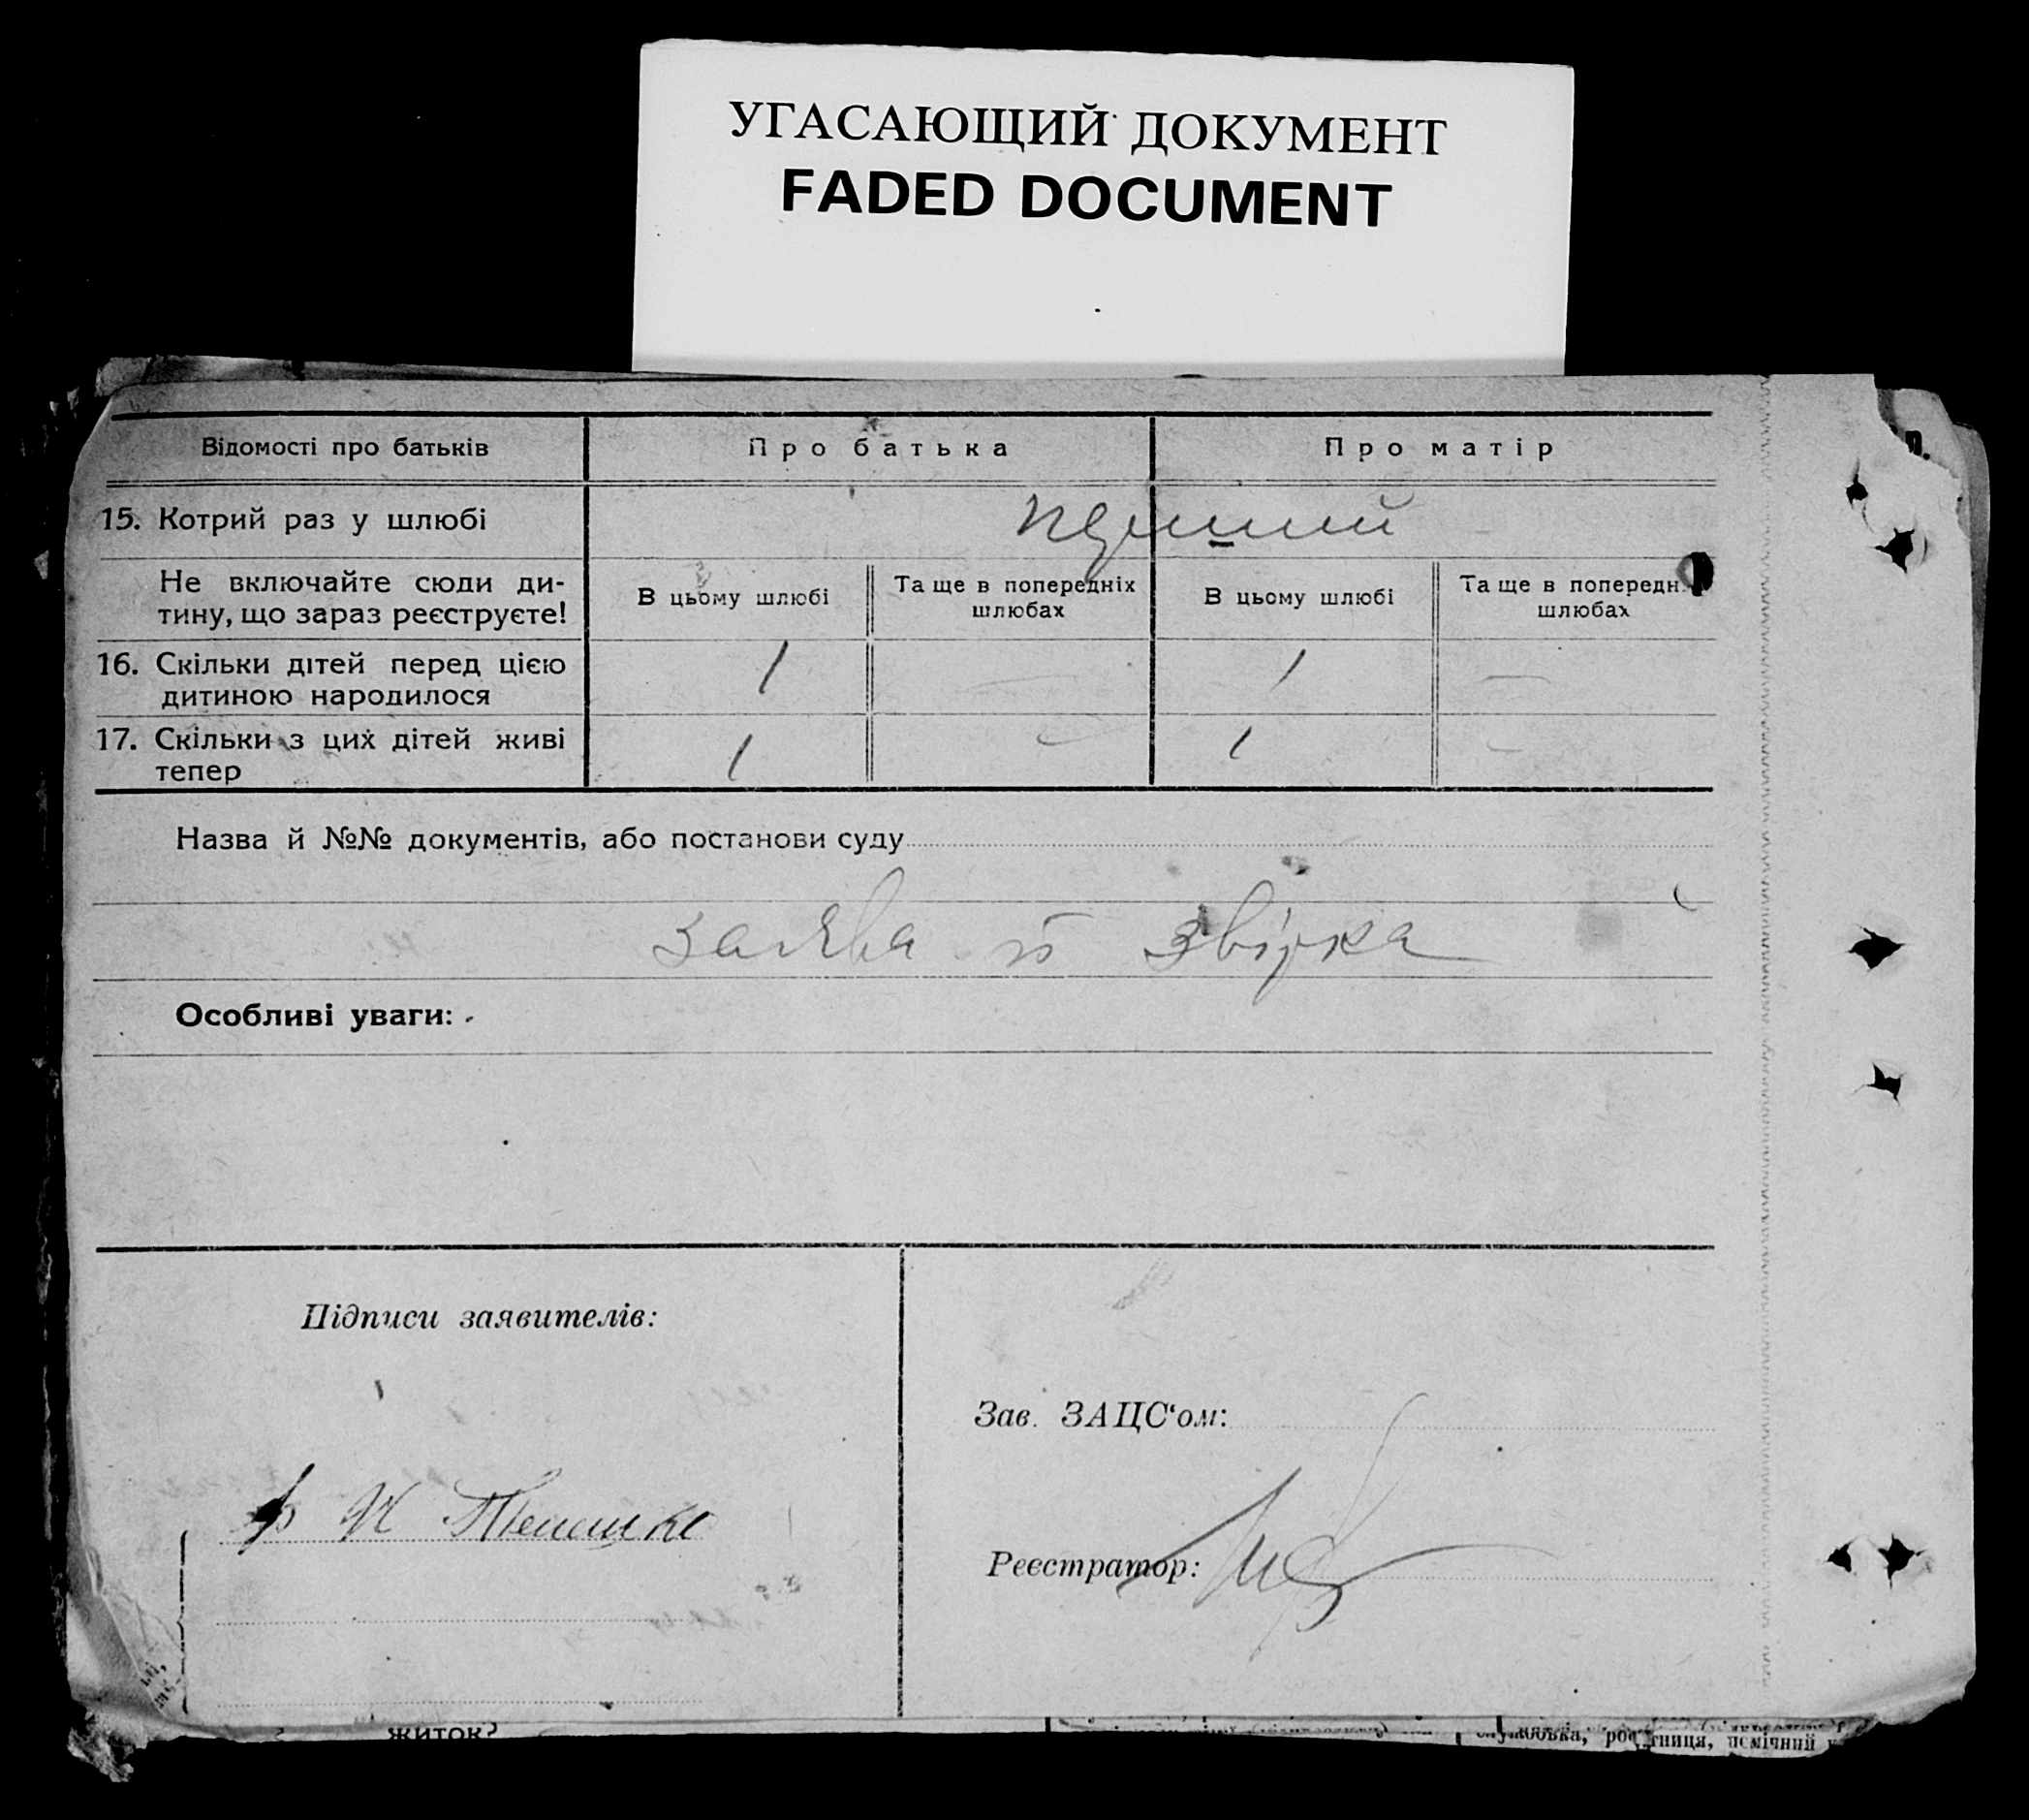 УГАСАЮЩИЙ ДОКУМЕНТ
FADED DOCUMENT
Відомості про батьків
Про батька
Про матір
15. Котрий раз у шлюбі
перший
Не включайте сюди ди-
тину, що зараз реєструєте!
В цьому шлюбі
Та ще в попередніх
шлюбах
В цьому шлюбі
Та ще в попередн
шлюбах
16. Скільки дітей перед цією
дитиною народилося
1
—
1
—
17. Скільки з цих дітей живі
тепер
1
—
1
—
Назва й №№ документів, або постанови суду
заява й звірка
Особливі уваги:
Підписи заявителів:
Зав. ЗАЦС‘ом:
Реєстратор:
житок?
службовка, ниця, помічний